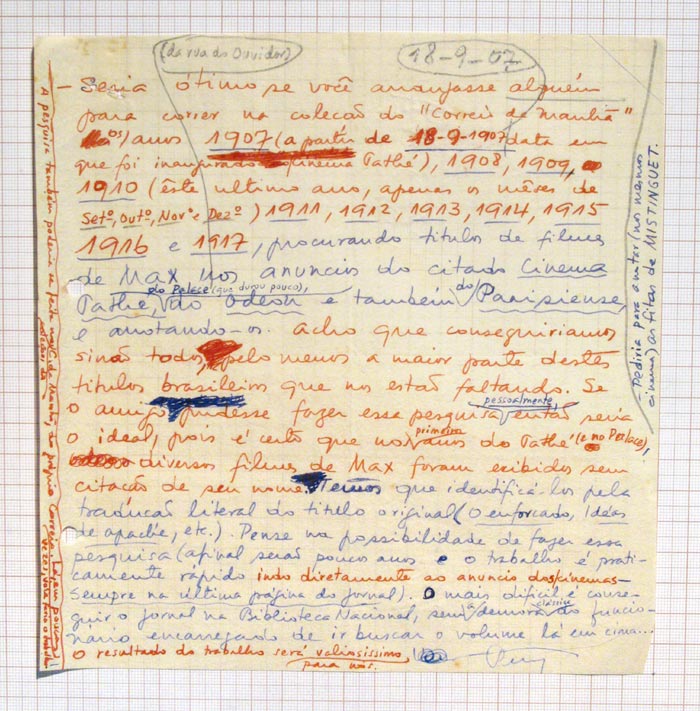 (da rua do Ouvidor)
18-9-07
— Seria ótimo se você arranjasse alguém
para correr na coleção do "Correio da Manhã"
os) anos 1907 (a partir de 18-9-1907 data em
que foi inaugurado o Cinema Pathé), 1908, 1909,
1910 (êste ultimo ano, apenas os mêses de
Setº, Outº, Novº e Dezº) 1911, 1912, 1913, 1914, 1915
1916 e 1917, procurando titulos de filmes
de Max nos anuncios do citado Cinema
do Palace (que durou pouco),
Pathé, do Odeon e tambem do Parisiense,
e anotando-os. Acho que conseguiriamos
sinão todos, pelo menos a maior parte destes
titulos brasileiros que nos estão faltando. Se
pessoalmente,
o amigo pudesse fazer essa pesquisa então seria
primeiros
o ideal, pois é certo que nos anos do Pathé (e no Palace),
diversos filmes de Max foram exibidos sem
citação de seu nome. Temos que identificá-los pela
tradução literal do titulo original (O enforcado, Idéas
de apache, etc.). Pense na possibilidade de fazer essa
pesquisa (afinal serão poucos anos e o trabalho é prati-
camente rápido indo diretamente ao anuncio dos cinemas-
sempre na última página do jornal). O mais dificil é conse-
guir o jornal na Biblioteca Nacional, sem a demora clássica do funcio-
nario encarregado de ir buscar o volume lá em cima...
O resultado do trabalho será valiosissimo
para nós.
— Pediria para anotar (nos mesmos
cinemas) as fitas de MISTINGUET.
A pesquisa tambem poderia ser feita no C. da Manhã, no próprio Correio